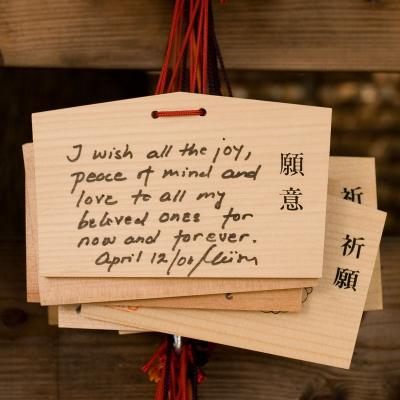 I wish all the joy,
peace of mind and
love to all my
beloved ones for
now and forever.
April 12/08/
願意
祈
祈願